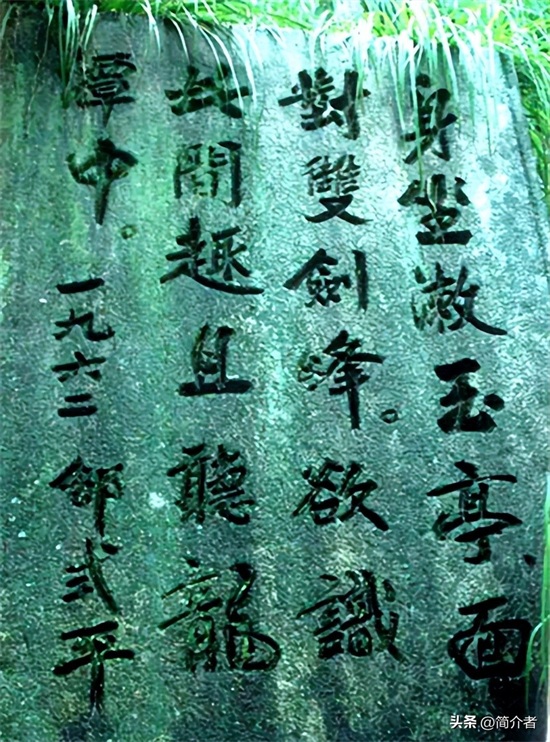 身坐漱玉亭、面
對雙劍峰。欲識
此間趣且聽龍
潭中。一九六二 邵式平
头条 @简介者